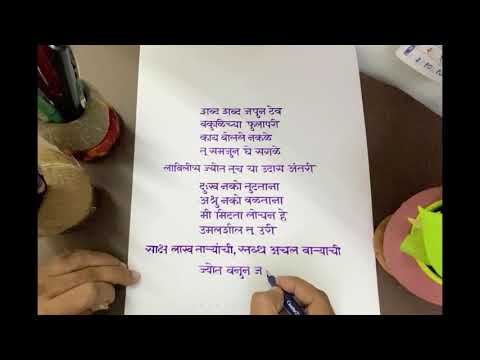 शब्द शब्द जपून ठेव
बकुळिच्या फुलापरी
काय बोलले नकळे
तू समजून घे सगळे
लाविलीस ज्योत तूच या उदास अंतरी
दुःख नको तुटताना
अश्रु नको वळताना
मी मिटता लोचन हे
उमलशील तू उरी
साक्ष लाख ताऱ्यांची, स्तब्ध अचल वाऱ्याची
ज्योत बनुन ज